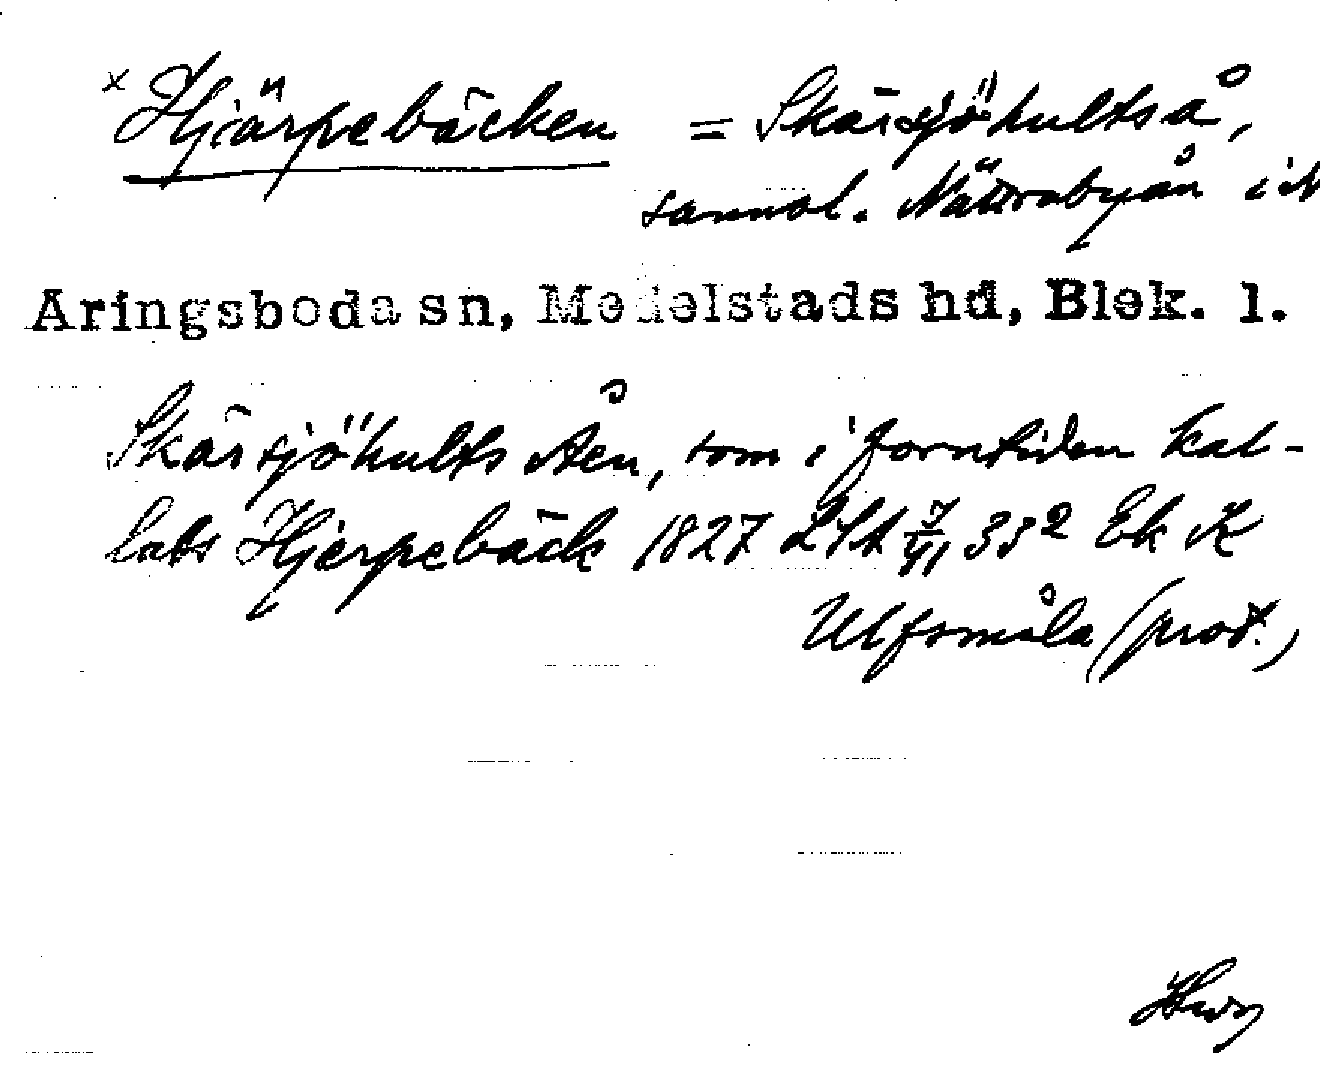 x Hjärpebäcken = Skärsjöhultså,
sannol. Nättrabyån i N
Aringsboda sn, Medelstads hd, Blek. l.
Skärsjöhults Åen, som i forntiden kal-
lats Hjerpebäck 1827 LSA 332 Ek K
Ulfsmåla (prot.)